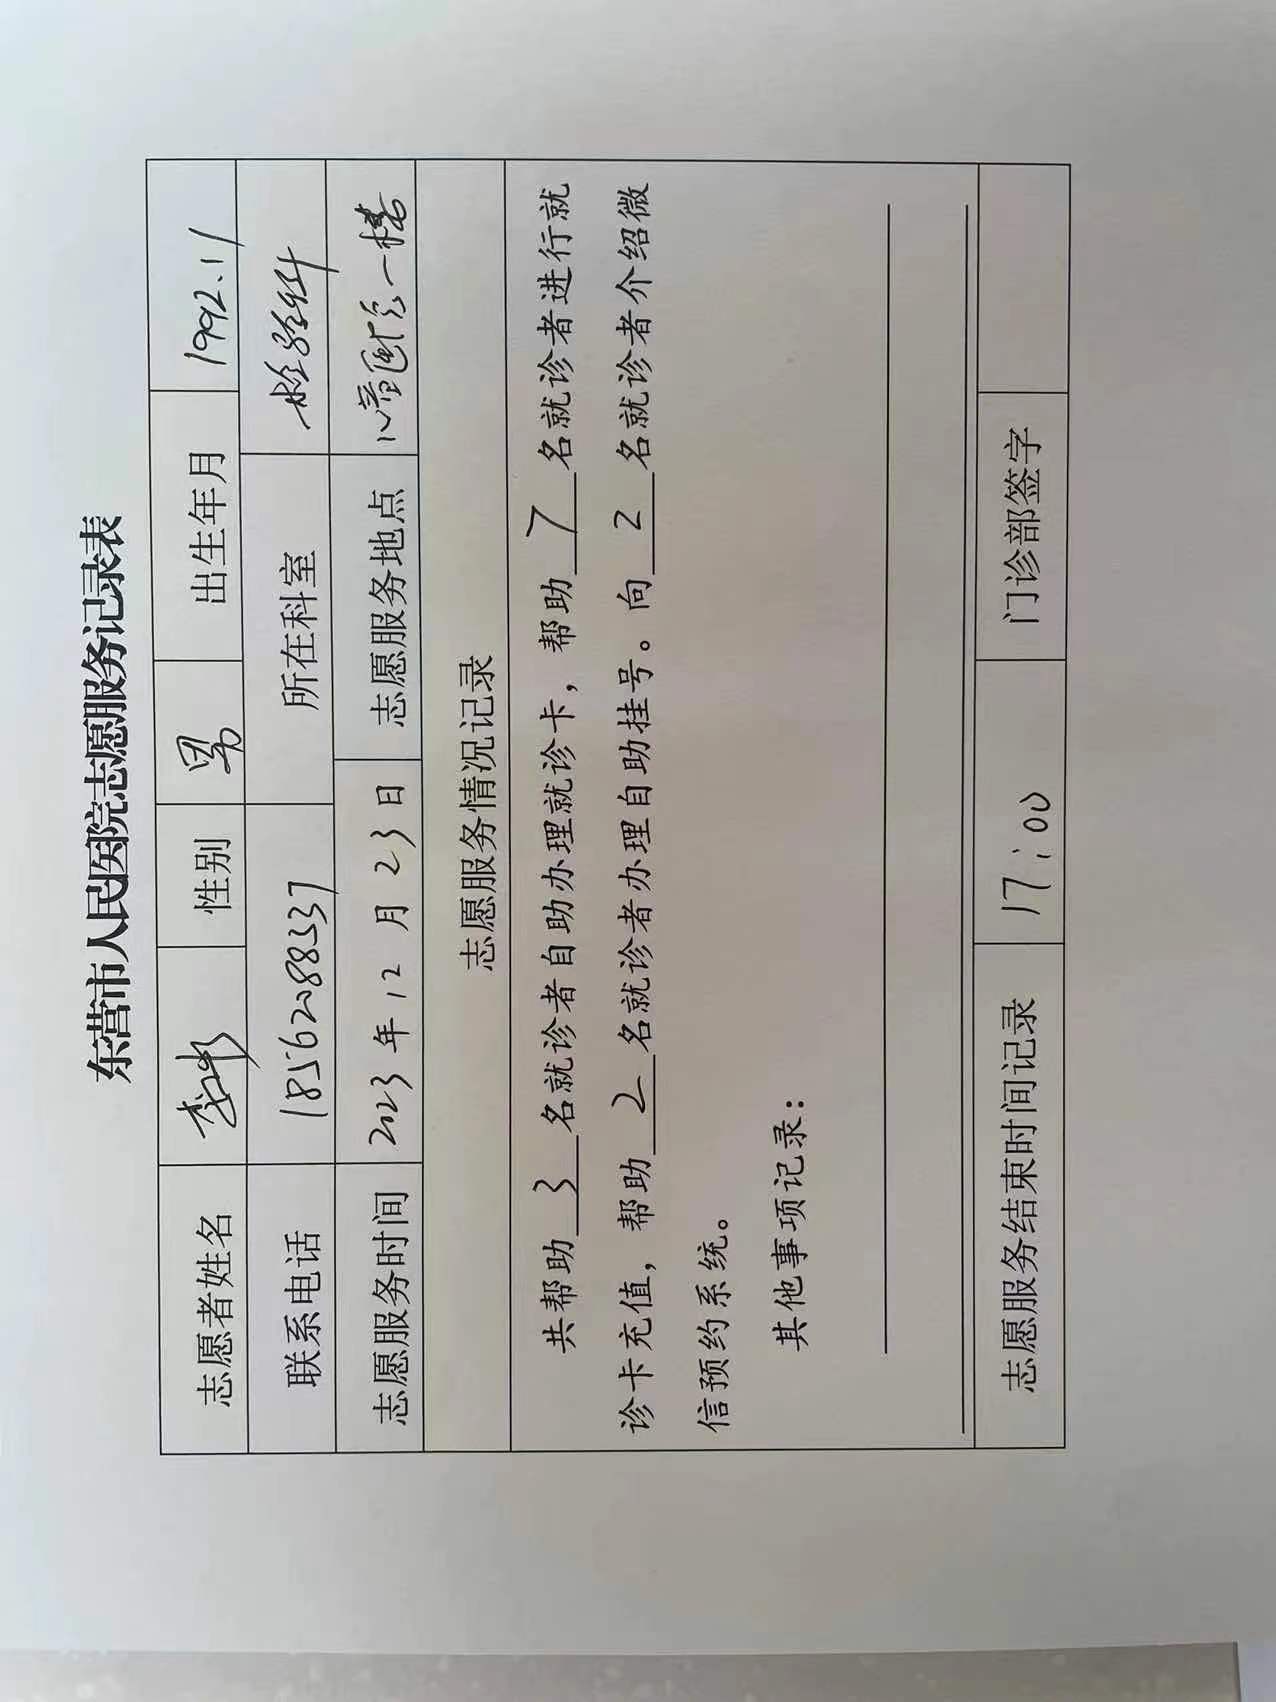 东营市人民医院志愿服务记录表
志愿者姓名 李彬 性别 男 出生年月 1992.11
联系电话 18562088337 所在科室 检验科
志愿服务时间 2023年12月23日 志愿服务地点 一楼
志愿服务情况记录
共帮助3名就诊者自助办理就诊卡，帮助7名就诊者进行就
诊卡充值，帮助2名就诊者办理自助挂号。向2名就诊者介绍微
信预约系统。
其他事项记录：
志愿服务结束时间记录 17:00 门诊部签字